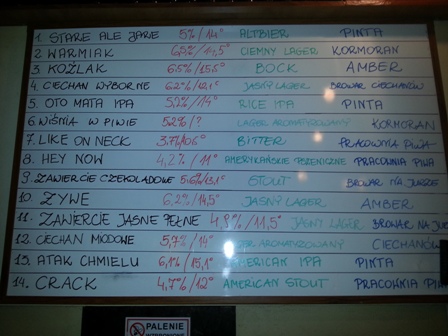 1. STARE ALE JARE 5% / 14° ALTBIER PINTA
2 WARMIAK CIEMNY LAGER KORMORAN
3 KOŹLAK 6.5% / BOCK AMBER
4. CIECHAN WYBORNE 6.2% / JASNY LAGER BROWAR CIECHANÓW
5. OTO MATA IPA RICE IPA PINTA
6. WIŚNIA W PIWIE 5.2% / ? LAGER AROMATYZOWANY KORMORAN
7. LIKE ON NECK BITTER PRACOWNIA PIWA
8. HEY NOW 4,2% / 11° AMERYKAŃSKIE PSZENICZNE PRACOWNIA PIWA
9. ZAWIERCIE CZEKOLADOWE 5.6% / 13,1° STOUT BROWAR NA JURZE
10. ŻYWE 6,2% / 14,5° JASNY LAGER AMBER
11. ZAWIERCIE JASNE PEŁNE 4,8% / 11,5° JASNY LAGER BROWAR NA JUR
12. CIECHAN MIODOWE 5,7% / 14° AROMATYZOWANY CIECHANÓW
13. ATAK CHMIELU 6,1% / 15,1° AMERICAN IPA PINTA
14. CRACK 4,7% / 12° AMERICAN STOUT PRACOWNIA PIW
PALENIE
WZBRONIONE